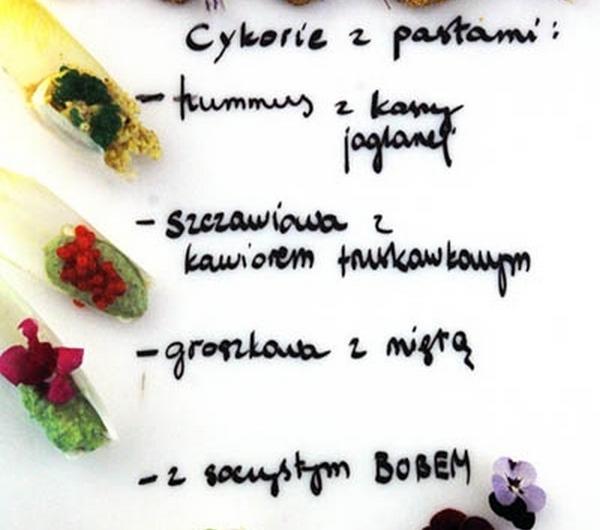 Cykorie z pastami:
- hummus z kaszy
jaglanej
- szczawiowa z
kawiorem truskawkowym
- groszkowa z miętą
- z soczystym BOBEM